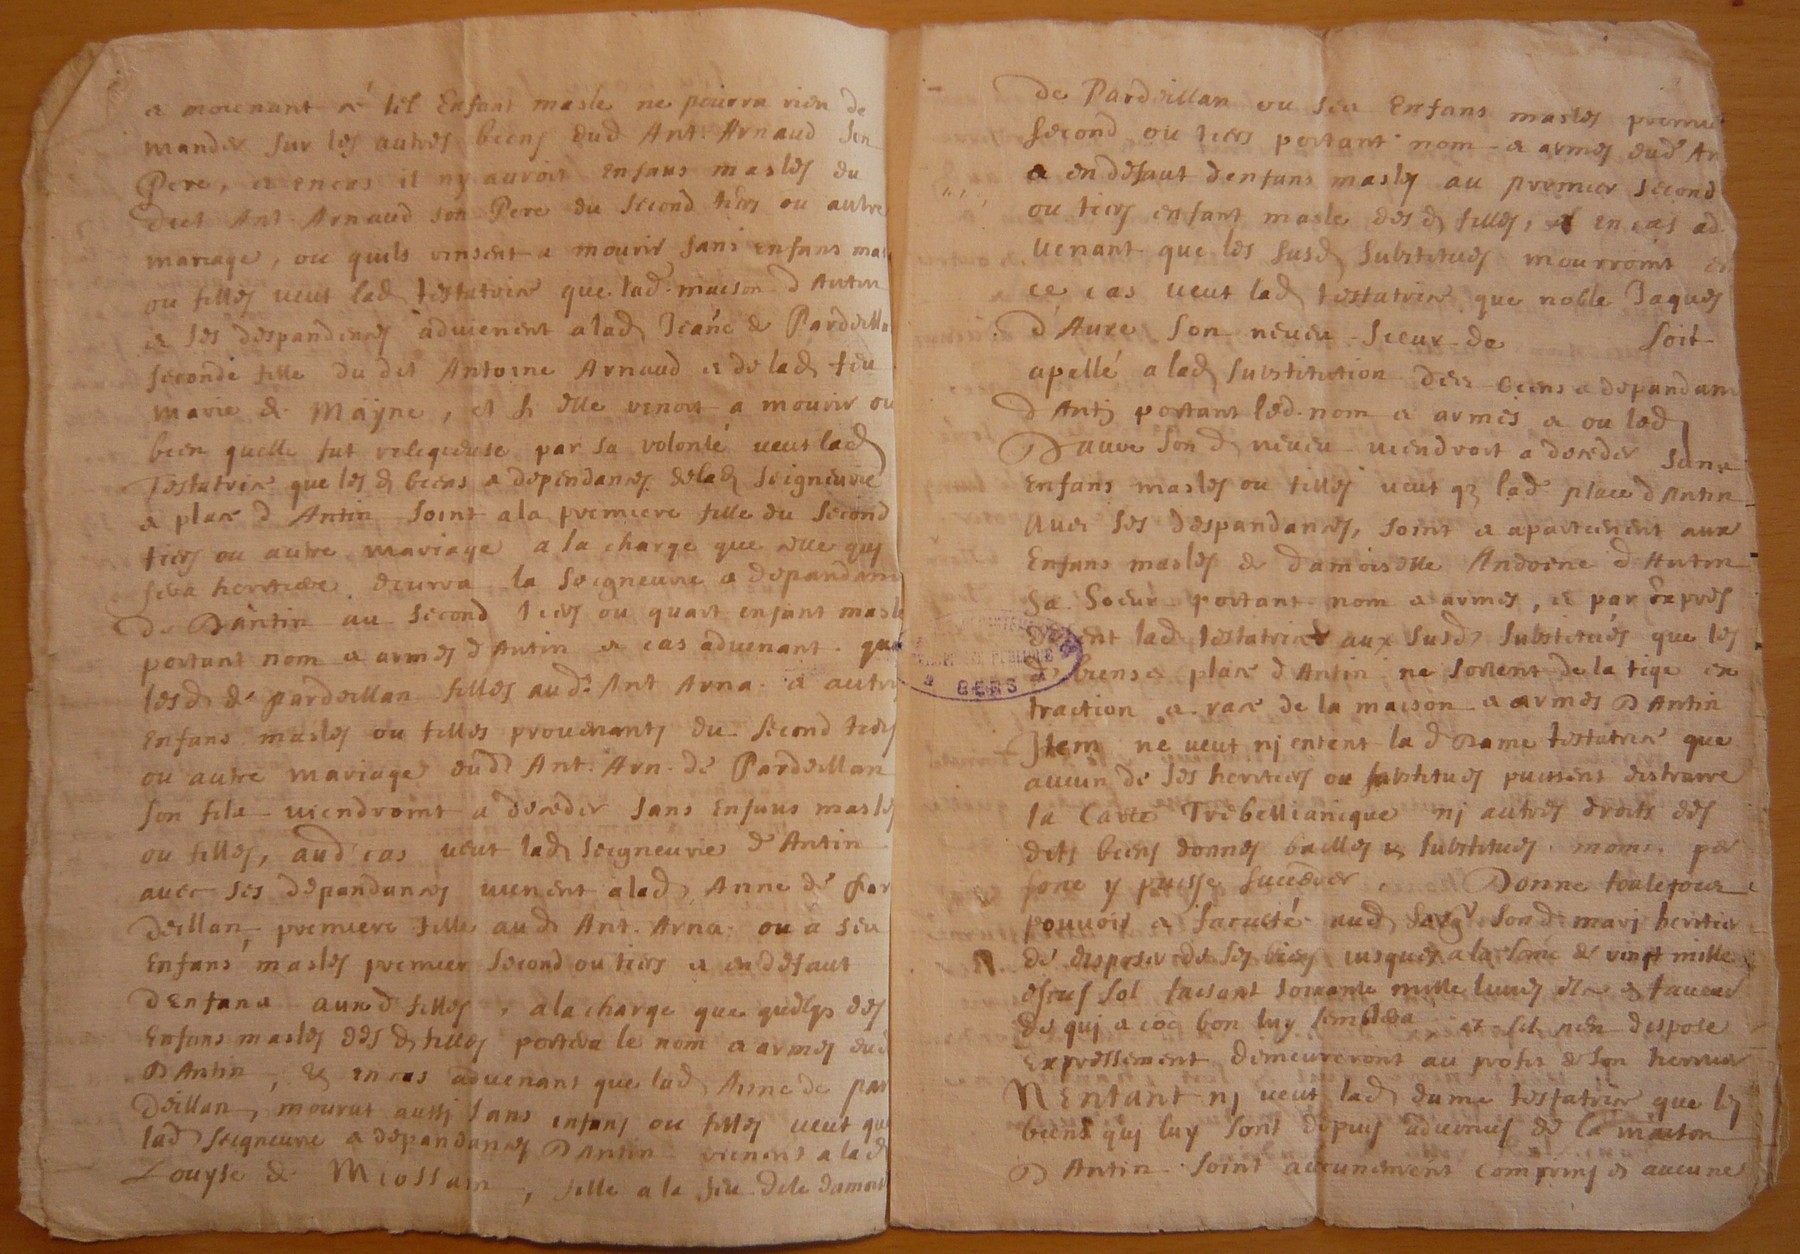 a moienant ce lel Enfant masle ne pourra rien de
mander sur les autres biens dud Ant. Arnaud son
Pere, et en cas il ny auroit enfans masles du
dict Ant. Arnaud son Pere du second tiers ou autre
mariage, ou quils vinsent a mourir sans enfans mas
ou filles veut lad testatrice que lad. maison d Antin
et ses despandences advienent a lad Jeane de Pardeilla
seconde fille du dit Antoine Arnaud et de lad feu
marie de Mayne, et si elle venoit a mourir ou
bien quelle fut religieuse par sa volonté veut lad
Testatrice que les d biens et dependances de lad seigneurie
et place d Antin soint a la premiere fille du second
tiers ou autre mariage a la charge que celle quy
sera heritiere la seigneurie et dependan
de Dantin au second tiers ou quart enfant masle
portant nom et armes d Antin et cas advenant que
lesd de pardeillan filles aud. Ant Arna. et autre
Enfans masles ou filles provenants du second tiers
ou autre mariage dud Ant. Arn. de Pardeillan
son fils viendroint a deceder sans Enfans masles
ou filles, aud cas veut lad seigneurie d Antin
avec ses dependances vienent a lad Anne de Par
deillan, premiere fille aud Ant. Arna. ou a seu
Enfans masles premier second ou tiers et en defaut
d Enfans aux d filles, a la charge que quelqs des
Enfans masles des d filles portera le nom et armes dud
D Antin, et en cas advenant que lad Anne de par
deillan, mourut aussi sans enfans ou filles veut que
lad seigneurie et dependances D Antin vienent a lad
Louyse de Miossain, fille a la feu dele damoi
de Pardeillan ou ses Enfans masles premie
second ou tiers portant nom et armes dud An
et en defaut denfans masles au premier second
ou tiers enfant masle des d filles, et en cas ad
venant que les susd substitues mourroint en
ce cas veut lad testatrice que noble Jaques
d'Aure son neveu sieur de soit
apellé a lad substitution des biens et dependan
d Antin portant led. nom et armes et ou led
Daure son d neveu viendroit a deceder sans
Enfans masles ou filles veut q lad place d Antin
avec ses despandances, soint et apartienent aux
Enfans masles de damoiselle Andoine d Antin
sa soeur portant nom et armes, et par Expres
lad testatrice aux susd substitués que les
d biens et place d Antin ne sortent de la tige ex
traction et race de la maison et armes D Antin
Item ne veut ni entent la d Dame testatrice que
aucun de ses heritiers ou substitues puissent distraire
la Carte Trebellianique ni autres droits des
dits biens donnes bailles et substitues moins per
sone y puisse succeder. Donne toutefois
pouvoir et faculté aud seigr son d mari heritier
de disposer de ses biens jusques a la some de vingt mille
escus sol faisant soixante mille livres en faveur
de qui a coe bon luy semblera et sil nen dispose
Expressement demeureront au profit de son heritier
N Entant ni veut lad dame testatrice que les
biens qui luy sont depuis advenus de la maison
D Antin soint aucunement comprins en aucune